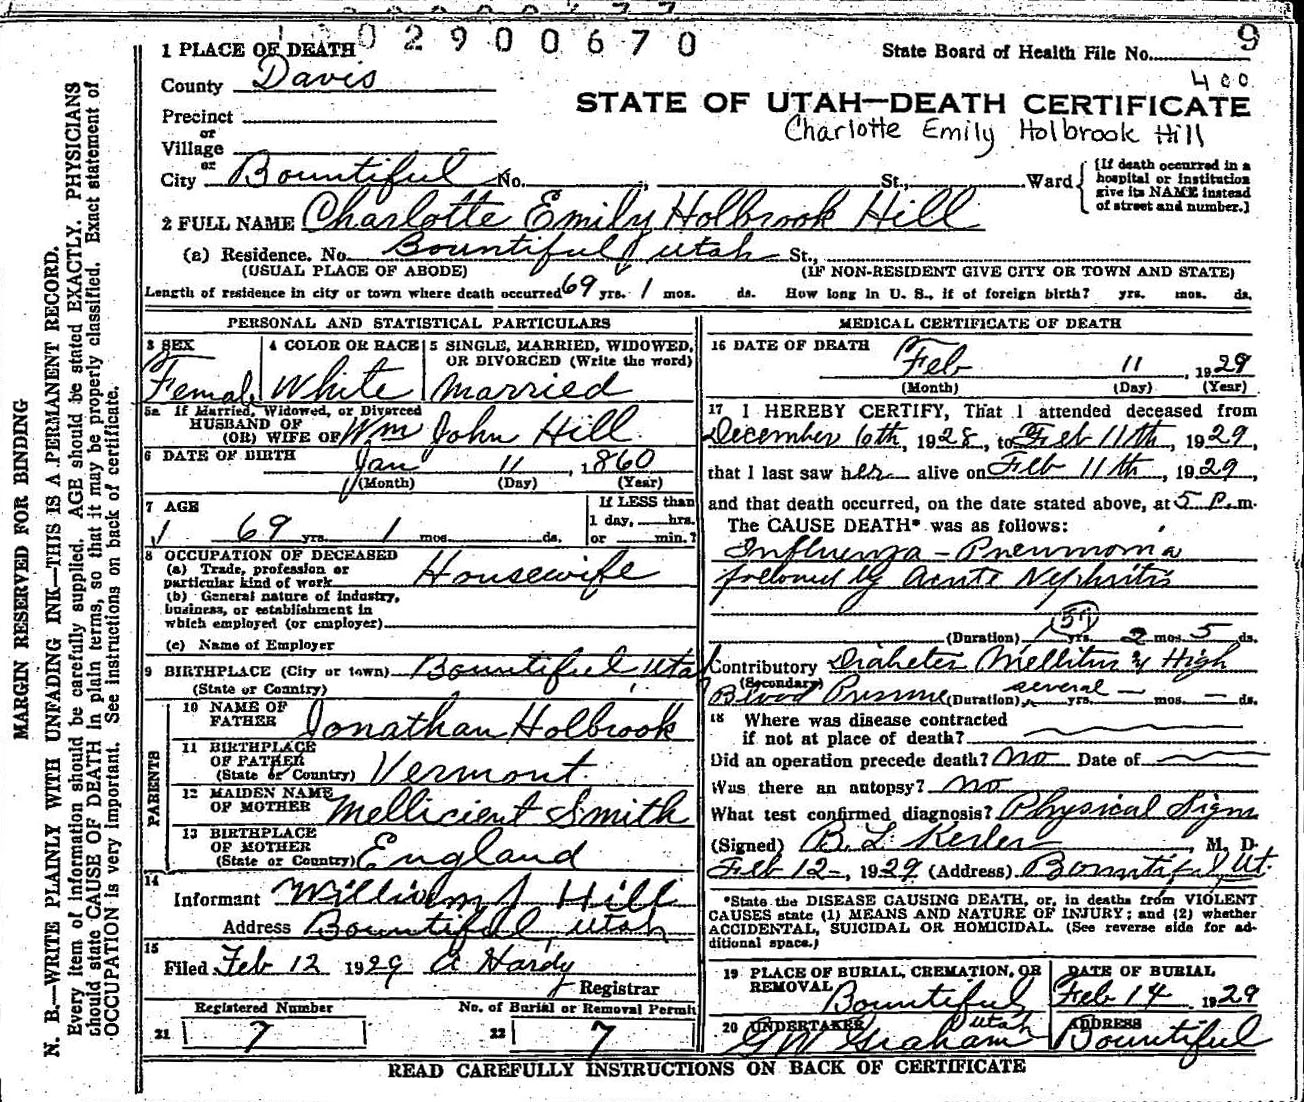 02900670
1 PLACE OF DEATH
State Board of Health File No. 9
County Davis
400
STATE OF UTAH—DEATH CERTIFICATE
Charlotte Emily Holbrook Hill
Precinct
or
Village
or
City Bountiful No. St., Ward
{If death occurred in a hospital or institution give its NAME instead of street and number.}
2 FULL NAME Charlotte Emily Holbrook Hill
(a) Residence. No. Bountiful Utah St.,
(USUAL PLACE OF ABODE) (IF NON-RESIDENT GIVE CITY OR TOWN AND STATE)
Length of residence in city or town where death occurred 69 yrs. 1 mos. ds. How long in U. S., if of foreign birth? yrs. mos. ds.
PERSONAL AND STATISTICAL PARTICULARS
3 SEX
Female
4 COLOR OR RACE
White
5 SINGLE, MARRIED, WIDOWED,
OR DIVORCED (Write the word)
Married
5a If Married, Widowed, or Divorced
HUSBAND OF
(OR) WIFE OF Wm John Hill
6 DATE OF BIRTH Jan 11 1860
(Month) (Day) (Year)
7 AGE
69 yrs. 1 mos. ds.
If LESS than
1 day, hrs.
or min.?
8 OCCUPATION OF DECEASED
(a) Trade, profession or
particular kind of work Housewife
(b) General nature of industry,
business, or establishment in
which employed (or employer)
(c) Name of Employer
9 BIRTHPLACE (City or town) Bountiful, Utah
(State or Country)
PARENTS
10 NAME OF
FATHER Jonathan Holbrook
11 BIRTHPLACE
OF FATHER
(State or Country) Vermont
12 MAIDEN NAME
OF MOTHER Mellicient Smith
13 BIRTHPLACE
OF MOTHER
(State or Country) England
14
Informant William J Hill
Address Bountiful, Utah
15
Filed Feb 12 1929 A Hardy
Registrar
Registered Number
21 7
No. of Burial or Removal Permit
22 7
MEDICAL CERTIFICATE OF DEATH
16 DATE OF DEATH
Feb 11, 1929
(Month) (Day) (Year)
17 I HEREBY CERTIFY, That I attended deceased from
December 10th, 1928, to Feb 11th, 1929,
that I last saw her alive on Feb 11th, 1929,
and that death occurred, on the date stated above, at 5 P. m.
The CAUSE DEATH* was as follows:
Influenza - Pneumonia
followed by Acute Nephritis
(Duration) yrs. 2 mos. 5 ds.
Contributory Diabetes Mellitus & High
(Secondary)
Blood Pressure (Duration) several yrs. — mos. — ds.
18 Where was disease contracted
if not at place of death?
Did an operation precede death? No Date of
Was there an autopsy? No
What test confirmed diagnosis? Physical Signs
(Signed) B. L. Kesler, M. D.
Feb 12, 1929 (Address) Bountiful, Ut.
*State the DISEASE CAUSING DEATH, or, in deaths from VIOLENT
CAUSES state (1) MEANS AND NATURE OF INJURY; and (2) whether
ACCIDENTAL, SUICIDAL OR HOMICIDAL. (See reverse side for ad-
ditional space.)
19 PLACE OF BURIAL, CREMATION, OR
REMOVAL Bountiful Utah
DATE OF BURIAL
Feb 14 1929
20 UNDERTAKER
GW Graham
ADDRESS
Bountiful
READ CAREFULLY INSTRUCTIONS ON BACK OF CERTIFICATE
MARGIN RESERVED FOR BINDING
N. B.—WRITE PLAINLY WITH UNFADING INK—THIS IS A PERMANENT RECORD.
Every item of information should be carefully supplied. AGE should be stated EXACTLY. PHYSICIANS
should state CAUSE OF DEATH in plain terms, so that it may be properly classified. Exact statement of
OCCUPATION is very important. See instructions on back of certificate.